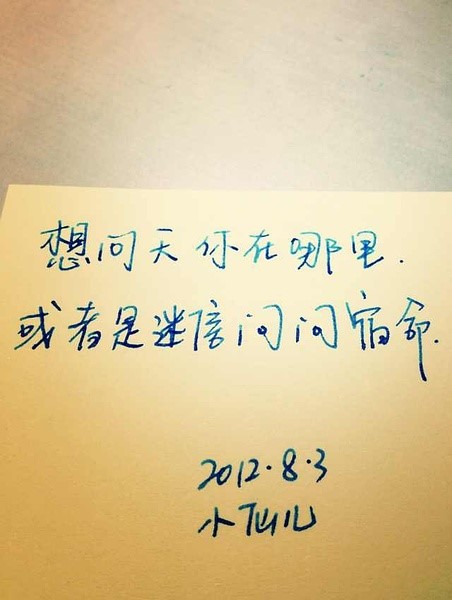 想问天你在哪里.
或者是迷信问问宿命.
2012.8.3
小仙儿